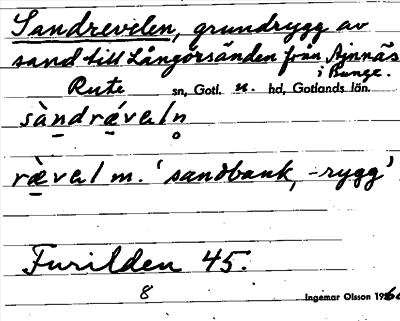 Sandrevelen, grundrygg av
sand till Långörsänden från Ajnnäs
i Bunge.
Rute sn, Gotl. n. hd, Gotlands län.
sàndrǽvəln
rævəl m. 'sandbank, -rygg'
Furilden 45.
8
Ingemar Olsson 1960